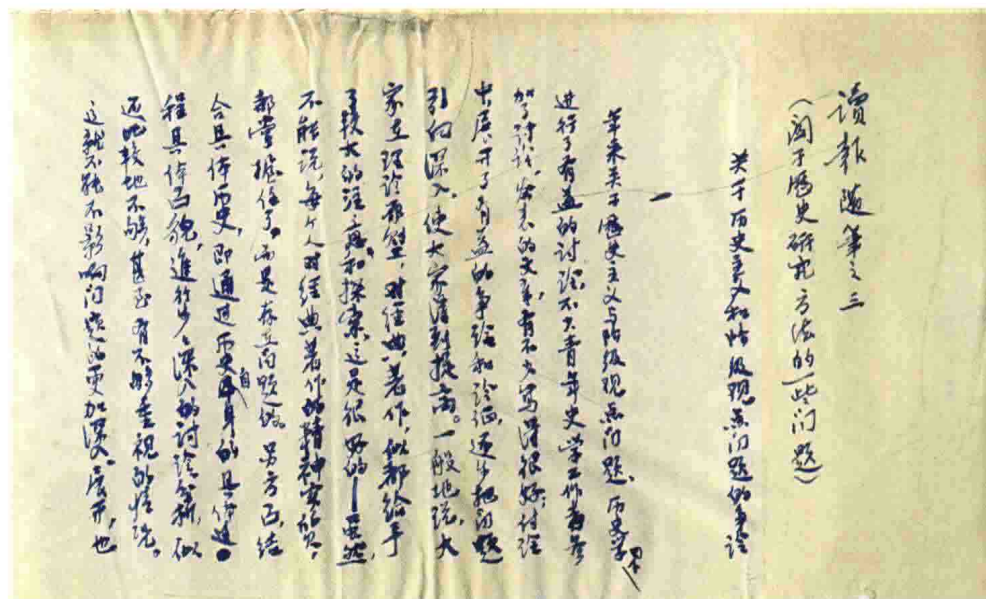 讀報随筆之三
(関于歷史研究方法的一些门题)
关于历史主义和阶级观点门题的争论
一
年来关于歷史主义与阶级观点门题,历史学界
进行了有益的讨论。不少青年史学工作者参
加了讨论。发表的文章,有不少写得很好,讨论
中展开了有益的争论和论证,逐步把问题
引向深入。使大家得到提高。一般地说,大
家在理论原则上,对经典著作,似都给予
了较大的注意和探索,这是很好的——虽然,
不能说,每个人对经典著作的精神实质,
都掌握住了。而是存在问题的。另方面,结
合具体历史,即通过历史自身的具体过
程具体面貌,進行步步深入的讨论分析,似
还比较地不够,甚至有不够重视的情况。
这就不能不影响门题的更加深入展开,也